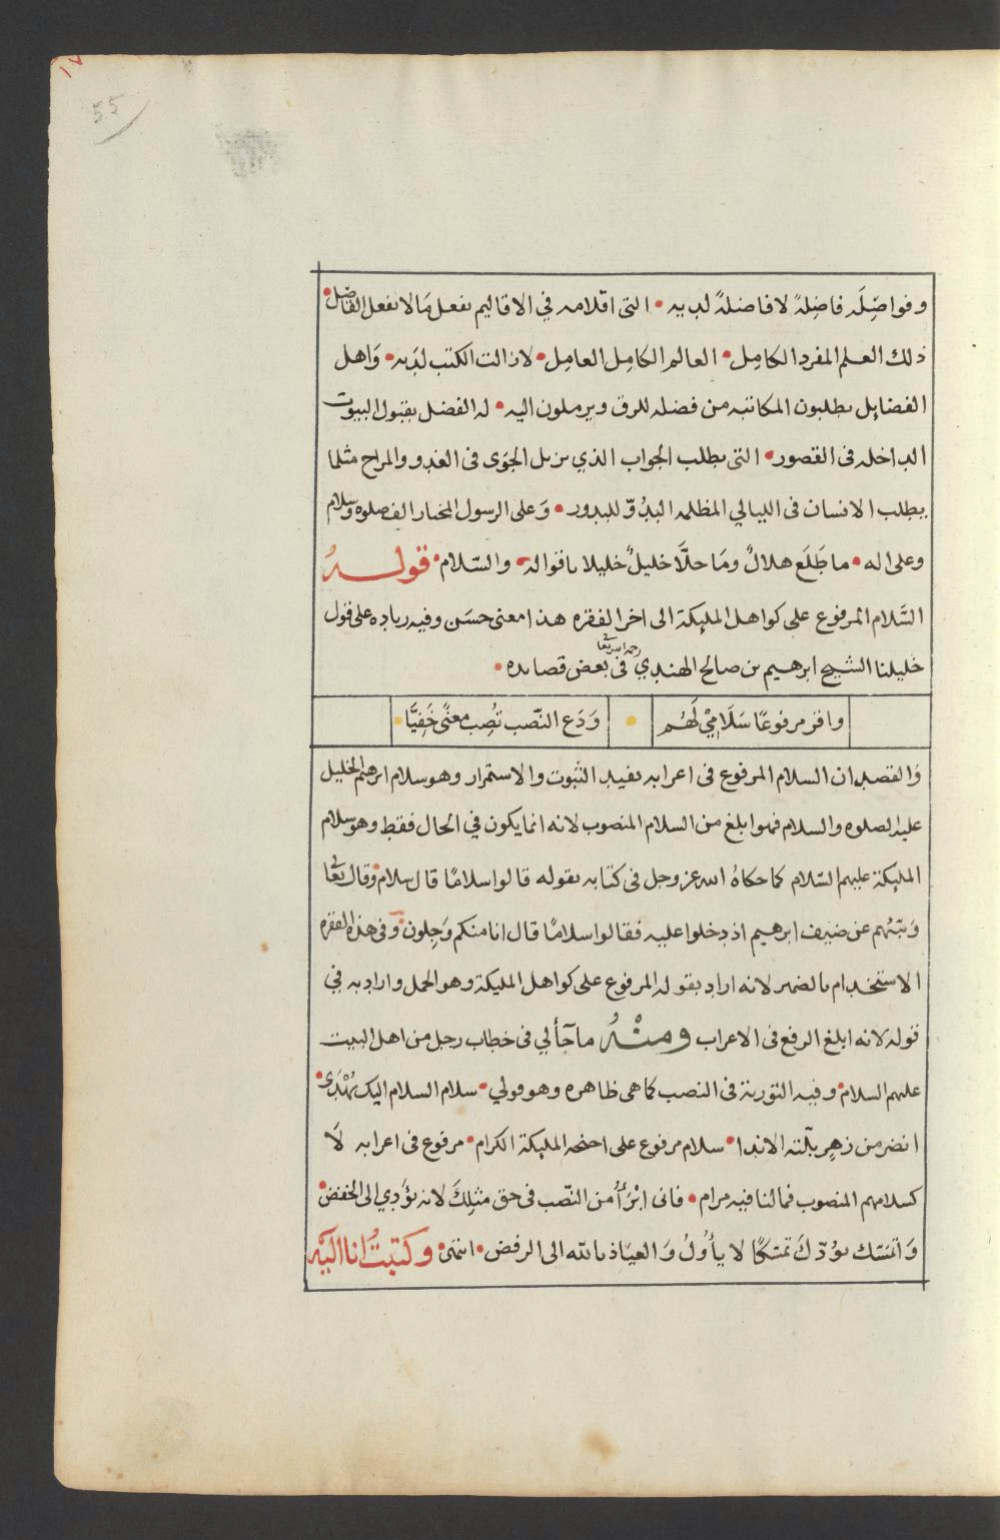 ١٧
55
وفواضِلَه فاضِلةً لا فاضلةً لديه • التى اقلامه في الاقاليم تفعل مَا لا يفعل الفاضل •
ذلك العلم المفرد الكامِل • العالم الكامِل العامِل • لا زالت الكتب لدَيه • وَاهل
الفضايل يطلبون المكاتبه من فضله للرق ويرملون اليه • له الفضل بقبول البيوت
الداخله فى القصور • التى يطلب الجواب الذي يزيل الجوَى فى الغدو والمراح مثلما
يطلب الانسان فى الليالي المظلمه البدُوّ للبدور • وَعلى الرسول المختار الف صلوه وسلام
وعلى اله • ما طَلَع هلالٌ ومَا حلَّا خليلٌ خليلا باقواله • والسّلام • قولـــهُ
السَّلام المرفوع على كواهل المليكة الى اخر الفقره هذا معنى حسَن وفيه زياده على قول
خليلنا الشيخ ابرهيم بن صالح الهندي رحمه الله تعا فى بعض قصائده •
واقر مرفوعًا سَلَامِيْ لَهُم • وَدَع النّصب تُصِب معنًى خَفِيًّا •
وَالقصد ان السلام المرفوع فى اعرابه يفيد الثبوت والاستمرار وهو سلام ابرهيم الخليل
عليه الصلوه والسلام فهو ابلغ من السلام المنصوب لانه انما يكون في الحال فقط وهو سلام
المليكة عليهم السّلام كما حكاهُ الله عز وجل فى كتابه بقوله قالوا سلامًا قال سلام • وقال تعا
وَنبّئهم عن ضيف ابرهيم اذ دخلوا عليه فقالوا سلامًا قال انا منكم وَجِلون • وَفى هذه الفقره
الاستخدام بالضمير لانه اراد بقوله المرفوع على كواهل المليكة وهو الحمل واراد به في
قوله لانه ابلغ الرفع فى الاعراب ومنْـهُ ما جَآ لي فى خطاب رجل من اهل البيت
عليهم السلام • وفيه التورية فى النصب كما هى ظاهره وهو قولي • سلام السلام اليك يُهْدَى •
انضر من زهرٍ بلّته الاندا • سلام مرفوع على اجنحه المليكة الكرام • مرفوع فى اعرابه لَا
كسلامهم المنصوب فما لنا فيه مرام • فانى ابْرَأُ من النّصب فى حق مثلِكَ لانه يؤَدي الى الخفض •
وَاتمسّك بوُدّكَ تمسّكًا لا يأُولُ وَالعيَاذ بالله الى الرفض • انتهى • وكتبتُ انا اليَه